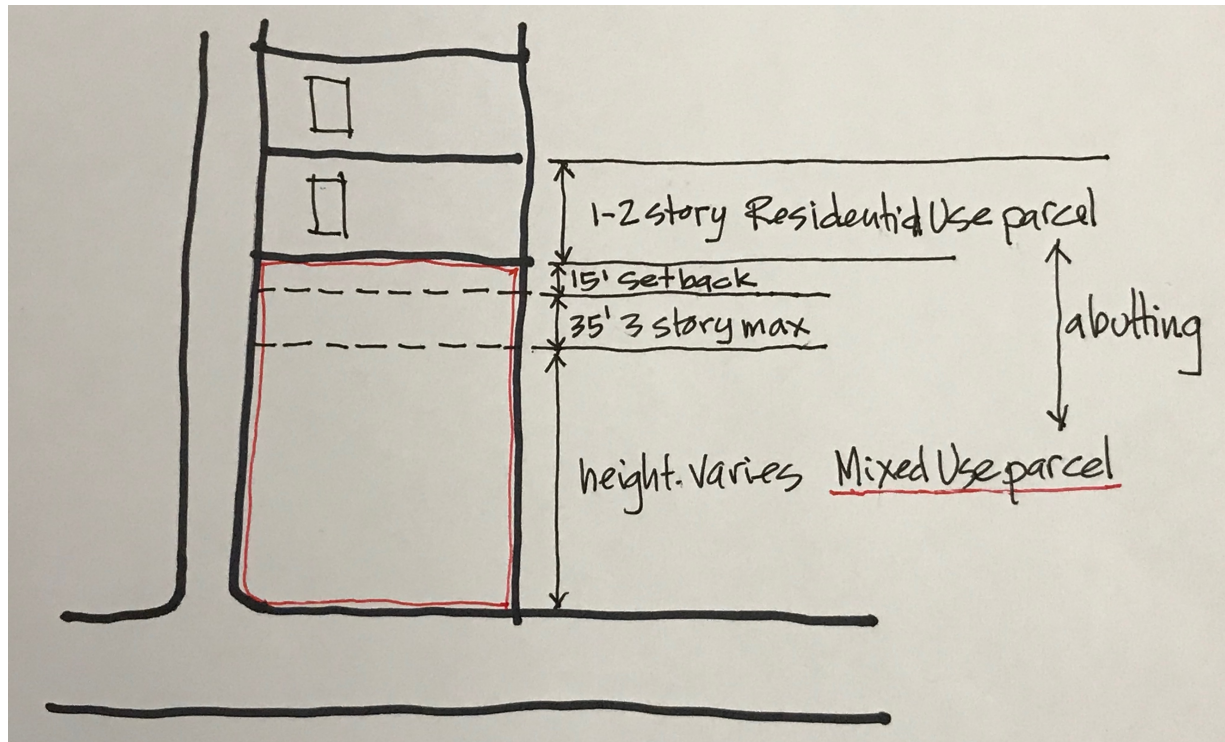 1-2 story Residential Use parcel
15' setback
35' 3 story max
abutting
height varies Mixed Use parcel